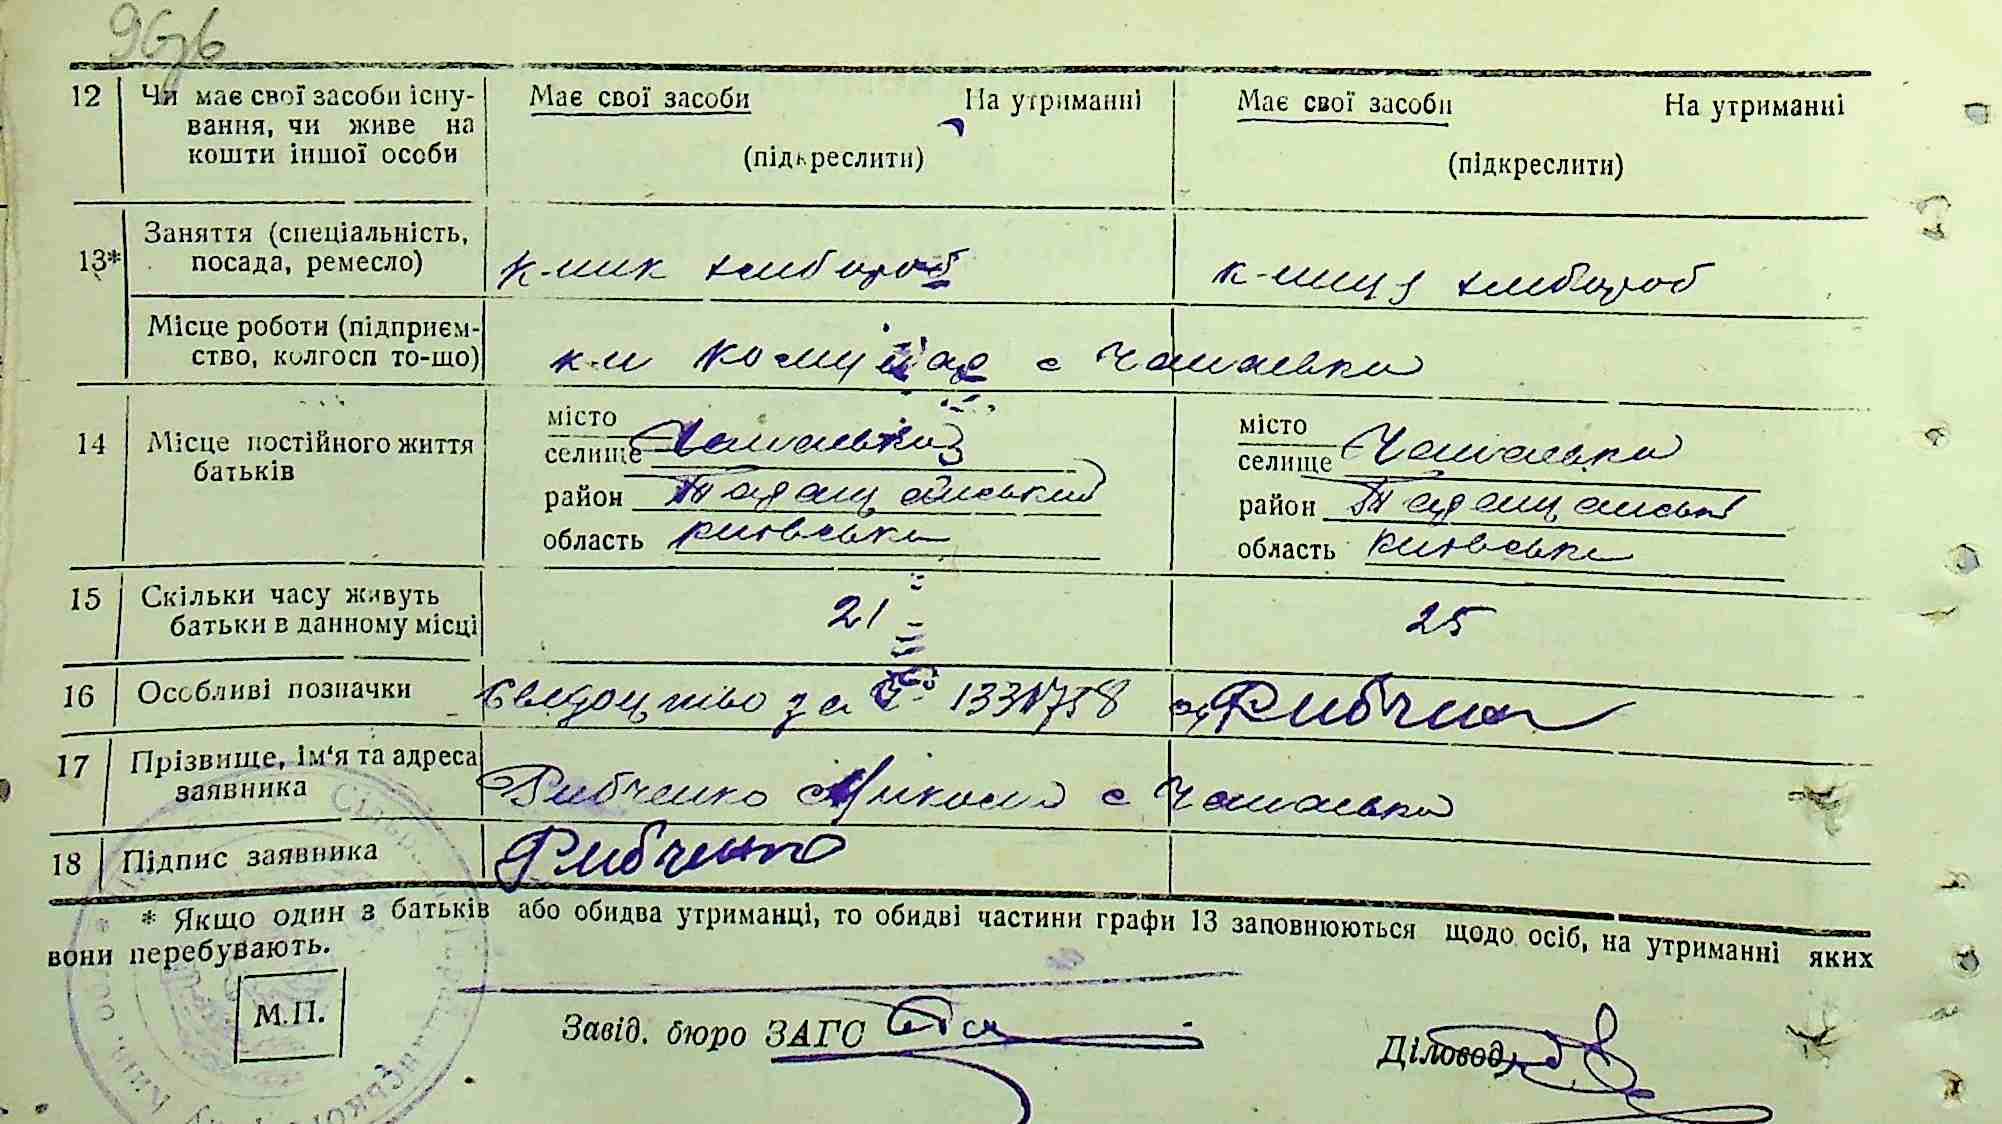 12 Чи має свої засоби існу-
вання, чи живе на
кошти іншої особи
Має свої засоби На утриманні
(підкреслити)
Має свої засоби На утриманні
(підкреслити)
13* Заняття (спеціальність,
посада, ремесло)
к-ник хлібороб
к-ниця хлібороб
Місце роботи (підприєм-
ство, колгосп то-що)
к-п Комунар с Чапаєвка
14 Місце постійного життя
батьків
місто
селище Чапаєвка
район Таращанський
область Київська
місто
селище Чапаєвка
район Таращанськи
область Київська
15 Скільки часу живуть
батьки в данному місці
21
25
16 Особливі позначки
Свідоцтво за
17 Прізвище, ім'я та адреса
заявника
Рибченко Микола с Чапаєвка
18 Підпис заявника
Рибченко
* Якщо один з батьків або обидва утриманці, то обидві частини графи 13 заповнюються щодо осіб, на утриманні яких
вони перебувають.
М.П.
Завід. бюро ЗАГС
Діловод